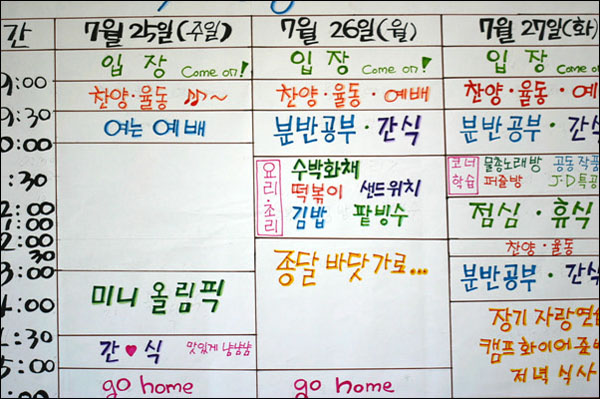 간 7월 25일(주일) 7월 26일(월) 7월 27일(화)
입 장 Come on! 입 장 Come on! 입 장 Come o
9:00
찬양·율동 찬양·율동·예배 찬양·율동·예
9:30
여는 예배 분반공부·간식 분반공부·간식
0:00
요리·조리 수박화채 코너학습 물총노래방 공동작품
:30
떡볶이 샌드위치 퍼즐방 J·D특공
김밥 팥빙수
2:00
점심·휴식
1:00
2:00
찬양·율동
30
종달 바닷가로...
3:00
분반공부·간식
미니 올림픽
4:00
장기 자랑연습
:30
간♥식 맛있게 냠냠냠 캠프화이어준비
5:00
저녁 식사
:00
go home go home